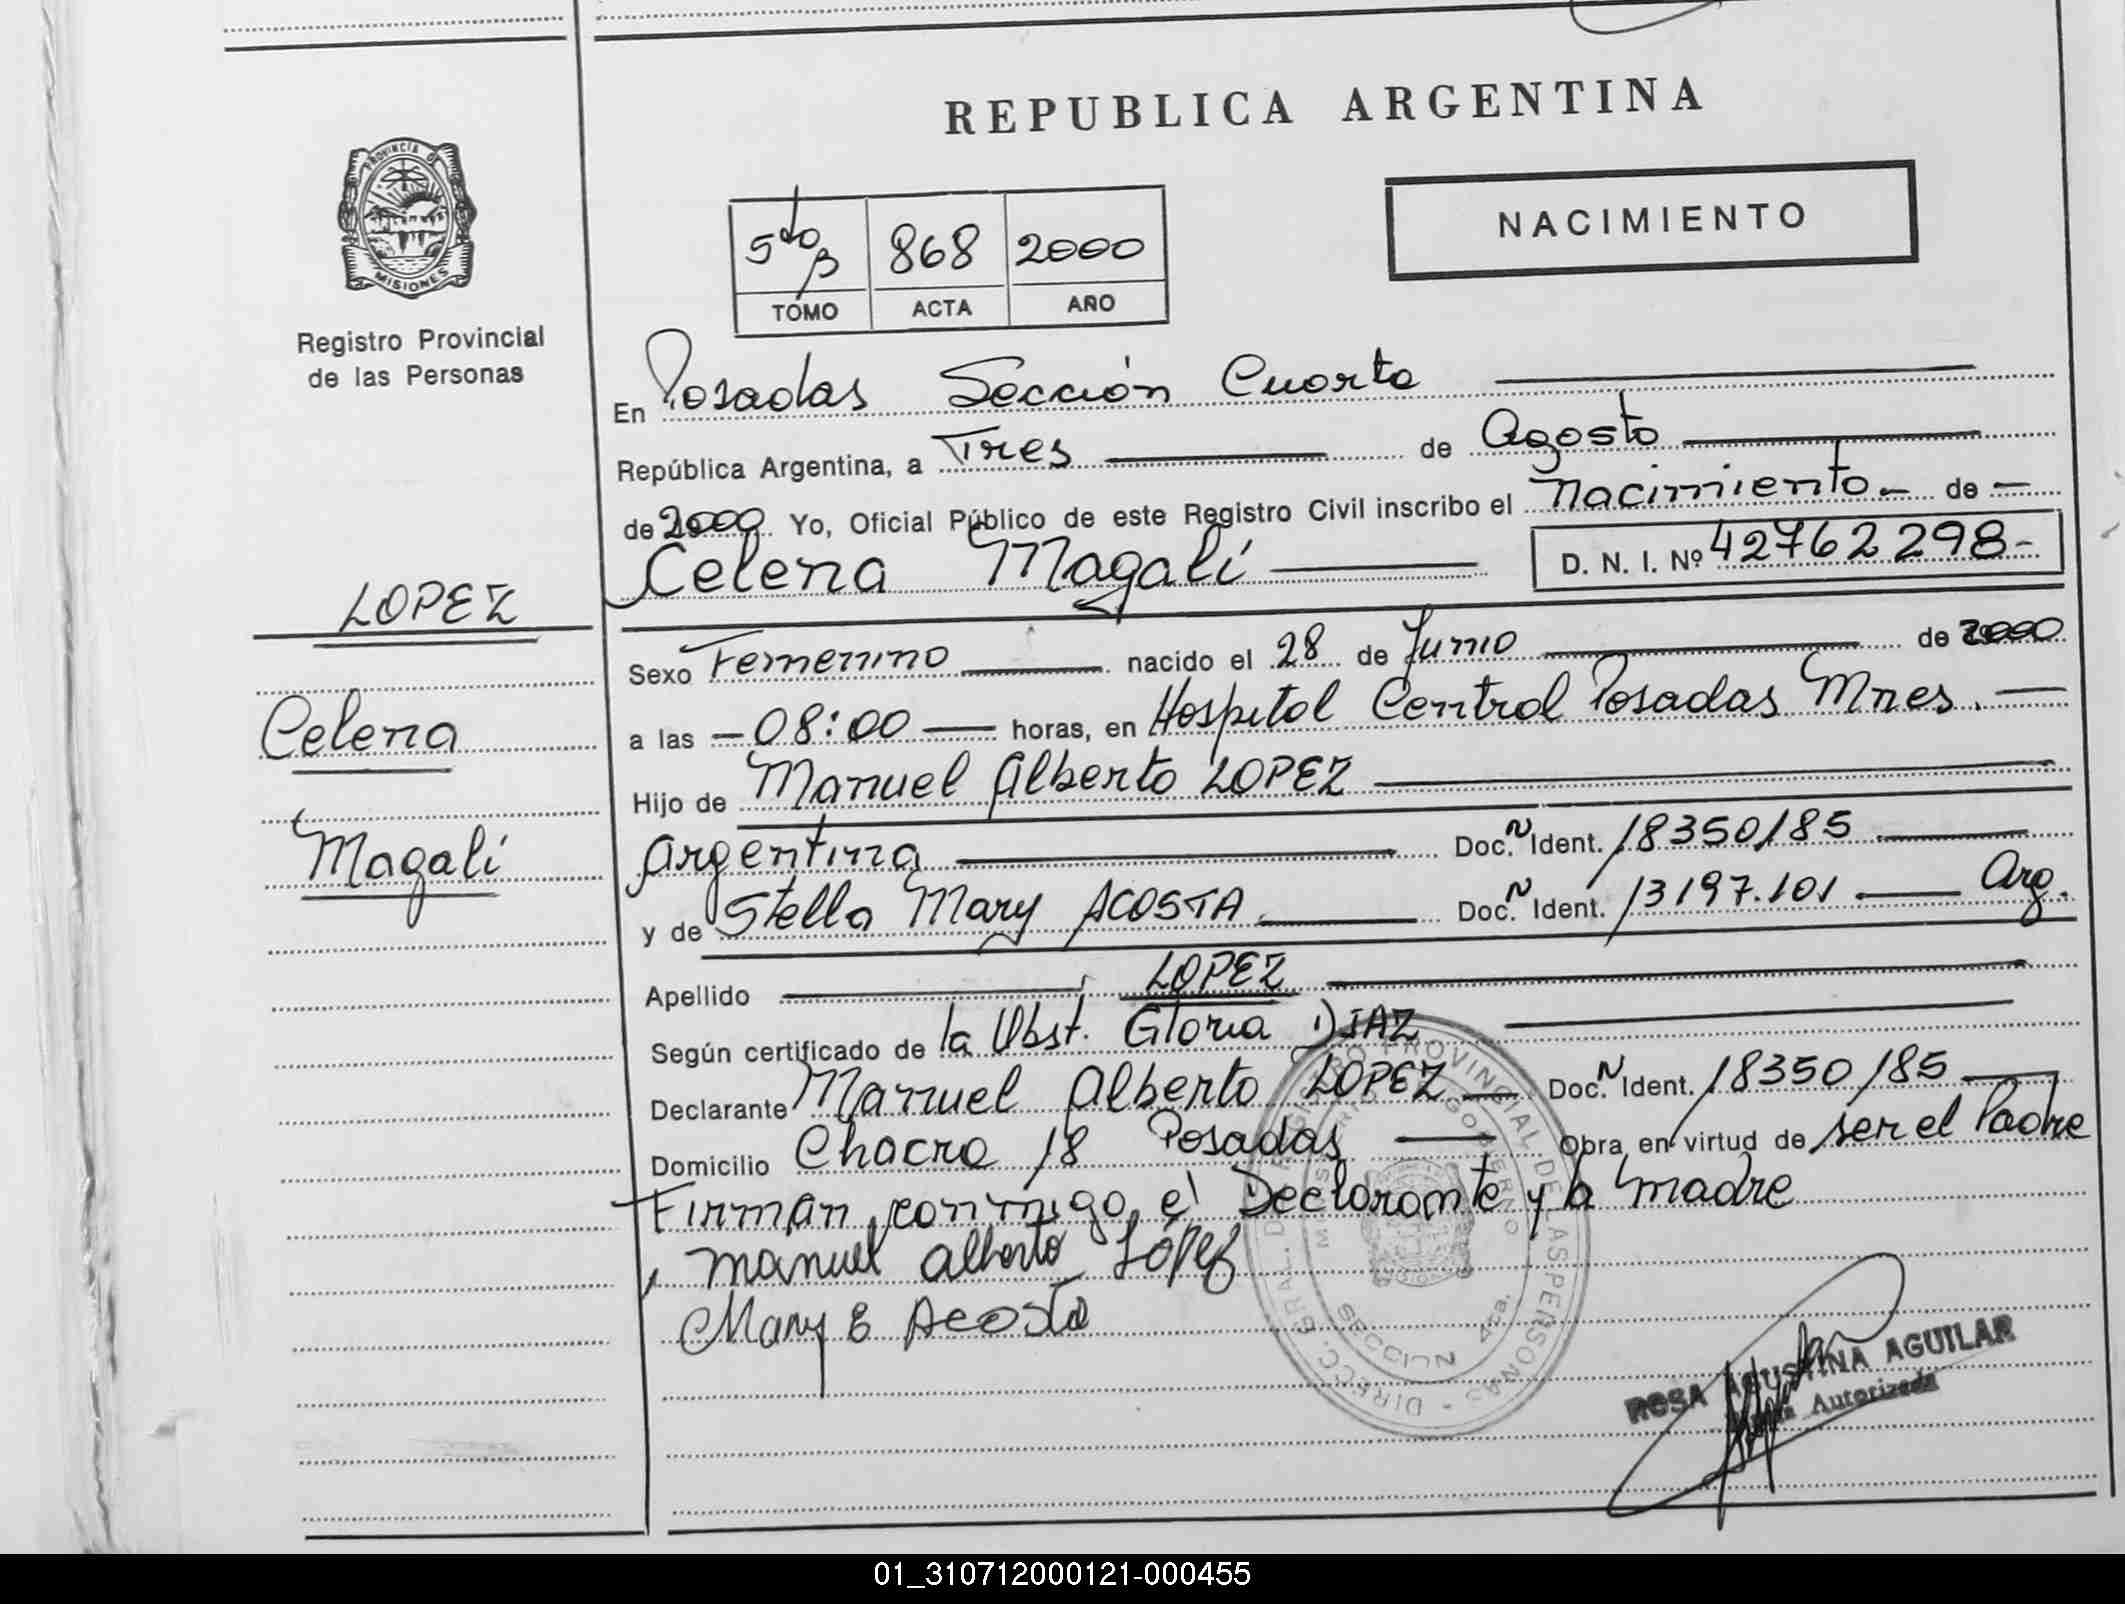 REPUBLICA ARGENTINA
NACIMIENTO
5to B 868 2000
TOMO ACTA AÑO
PROVINCIA DE
MISIONES
Registro Provincial
de las Personas
LOPEZ
Celena
Magalí
En Posadas Sección Cuarta
República Argentina, a Tres de Agosto
de 2000 Yo, Oficial Público de este Registro Civil inscribo el Nacimiento - de -
Celena Magalí D. N. I. Nº 42762298-
Sexo Femenino nacido el 28 de Junio de 2000
a las - 08:00 - horas, en Hospital Central Posadas Mnes. -
Hijo de Manuel Alberto LOPEZ
Argentina Doc. N Ident. 18350185
y de Stella Mary ACOSTA Doc. N Ident. 13197.101 Arg.
Apellido LOPEZ
Según certificado de la Obst. Gloria DIAZ
Declarante Manuel Alberto LOPEZ Doc. N Ident. 18350185
Domicilio Chacra 18 Posadas Obra en virtud de ser el Padre
Firman conmigo el Declarante y la madre
Manuel Alberto López
Mary E Acosta
DIRECC. GRAL. DEL REGISTRO PROVINCIAL DE LAS PERSONAS
SECCION 4ta.
ROSA AGUSTINA AGUILAR
Firma Autorizada
01_310712000121-000455